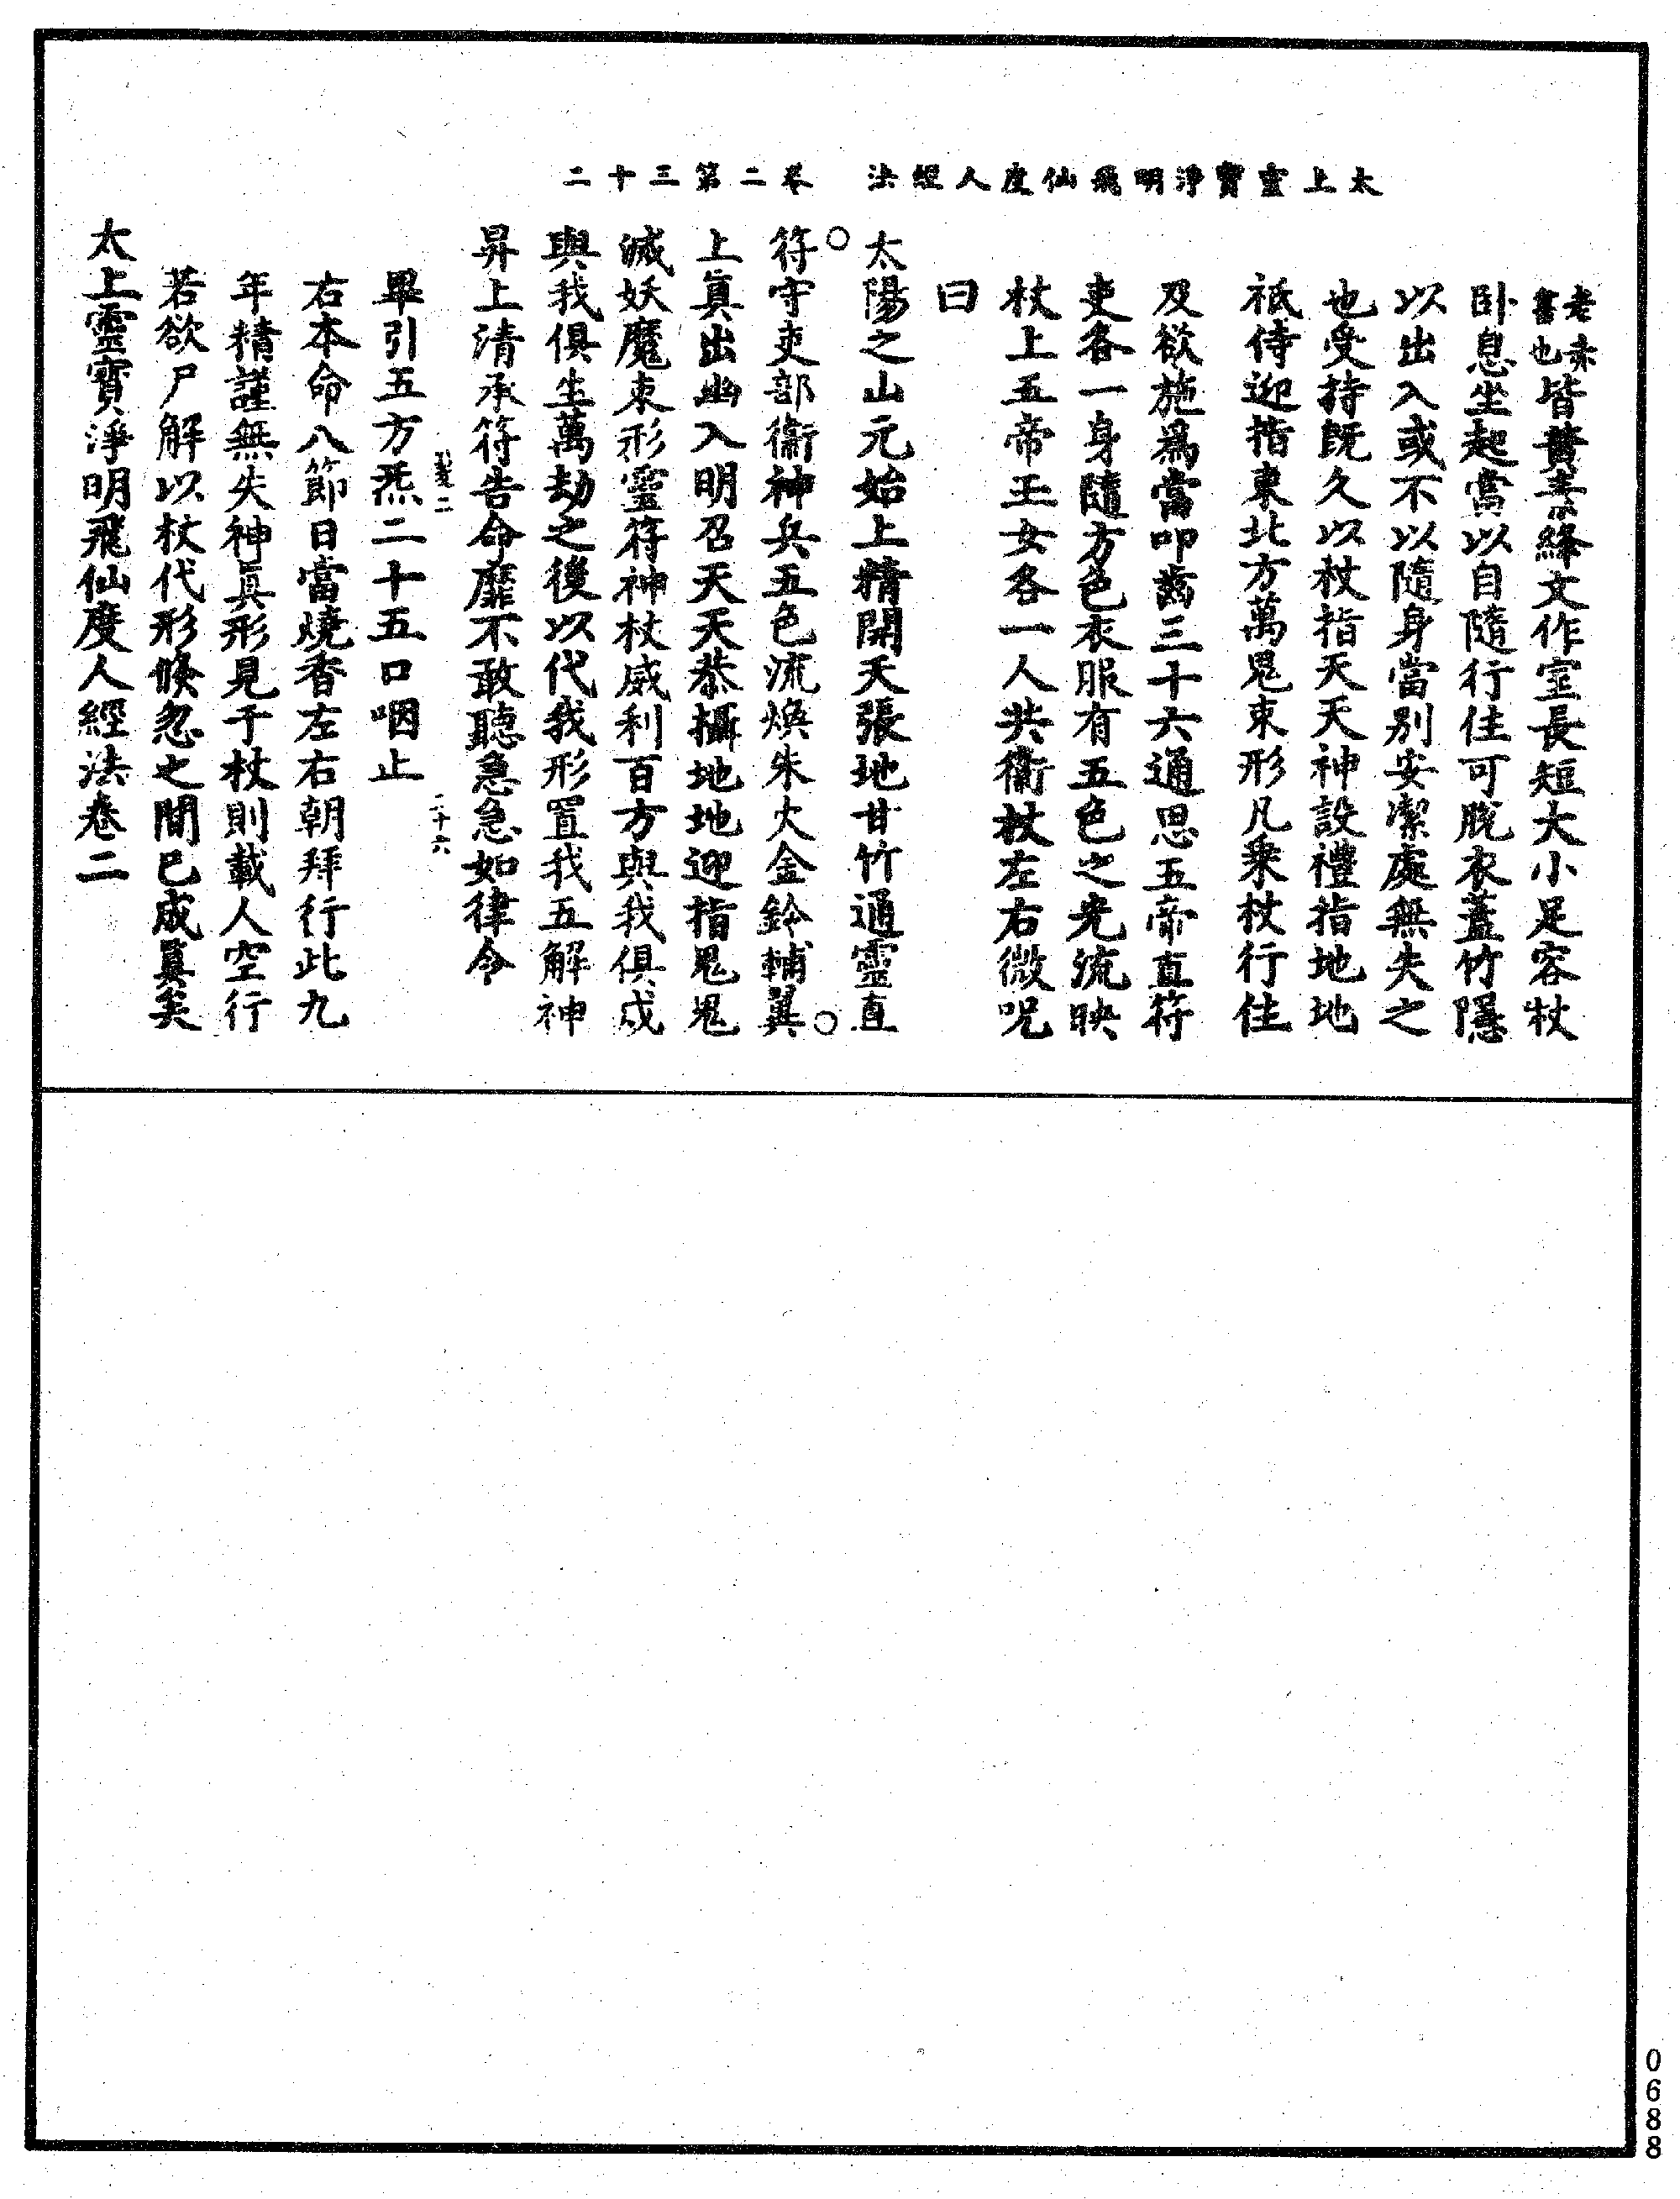 太上靈寶淨明飛仙度人經法　卷二第三十二
老赤書也皆黃素絳文作室長短大小足容杖
卧息坐起當以自隨行住可脫衣蓋竹隱
以出入或不以隨身當別安潔處無失之
也受持既久以杖指天天神設禮指地地
祇侍迎指東北方萬鬼束形凡乘杖行住
及欲施爲當叩齒三十六通思五帝直符
吏各一身隨方色衣服有五色之光流映
杖上五帝玉女各一人共衞杖左右微呪
曰
太陽之山元始上精開天張地甘竹通靈直
符守吏部衞神兵五色流煥朱火金鈴輔翼
上真出幽入明召天天恭攝地地迎指鬼鬼
滅妖魔束形靈符神杖威利百方與我俱成
與我俱生萬劫之後以代我形置我五解神
昇上清承符告命靡不敢聽急急如律令
二十六
畢引五方炁二十五口咽止
右本命八節日當燒香左右朝拜行此九
年精謹無失神真形見于杖則載人空行
若欲尸解以杖代形倏忽之間已成真矣
太上靈寶淨明飛仙度人經法卷二
0688